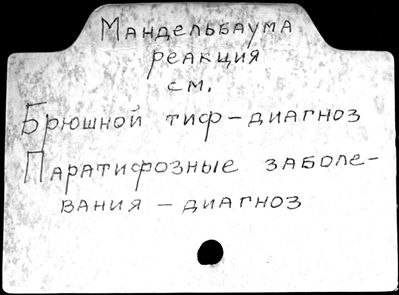 Мандельбаума
реакция
см.
Брюшной тиф-диагноз
Паратифозные заболе-
вания - диагноз